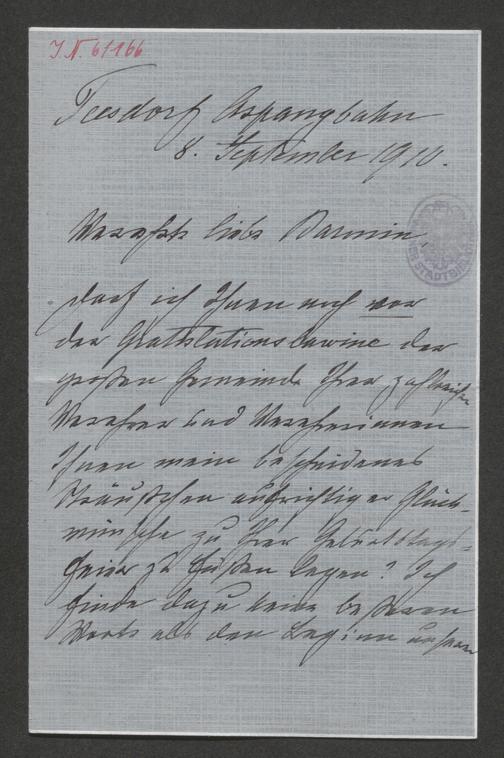 J.N. 61166
Teesdorf Aspangbahn
8. September 1910.
Verehrte liebe Baronin,
darf ich Ihnen noch vor
der Gratulationslawine der
großen Gemeinde Ihrer zahlreichen
Verehrer und Verehrerinnen
Ihnen mein bescheidenes
Sträußchen aufrichtiger Glück-
wünsche zu Ihrer Geburtstags-
feier zu Füßen legen? Ich
finde dazu keine besseren
Worte als den Beginn